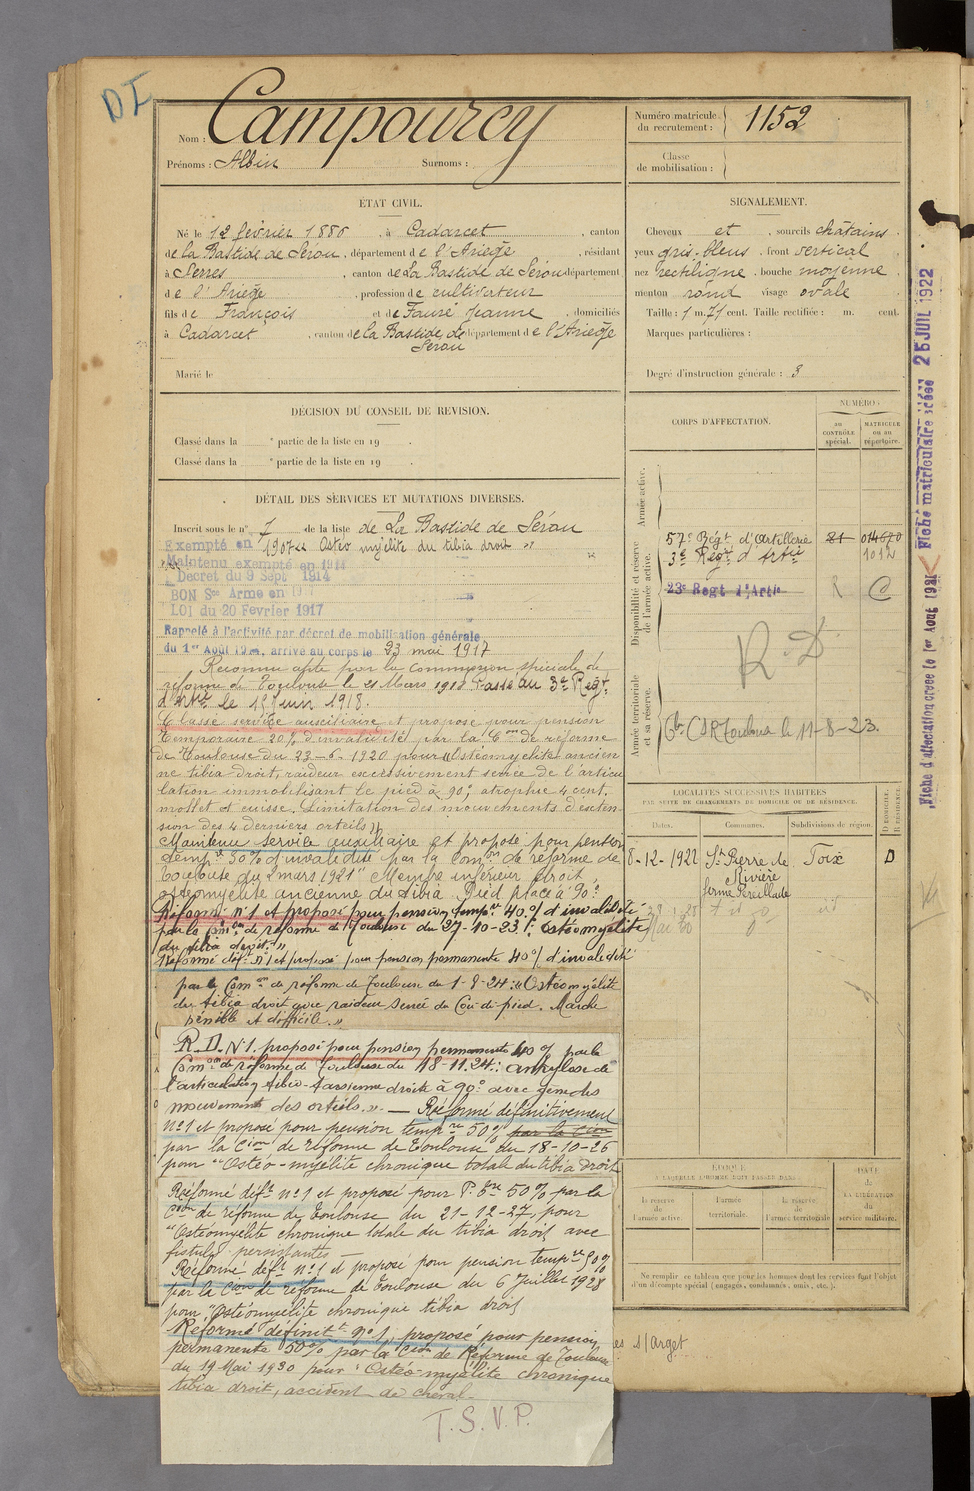 DI
Nom : Campourcy
Prénoms : Albin Surnoms :
Numéro matricule du recrutement : 1152
Classe de mobilisation :
ÉTAT CIVIL.
Né le 12 février 1886, à Cadarcet, canton
de la Bastide de Sérou, département de l'Ariège, résidant
à Serres, canton de La Bastide de Sérou département
de l'Ariège, profession de cultivateur
fils de François et de Faure Jeanne, domiciliés
à Cadarcet, canton de la Bastide de Sérou département de l'Ariège
Marié le
SIGNALEMENT.
Cheveux et sourcils châtains
yeux gris-bleus, front vertical
nez rectiligne, bouche moyenne
menton rond visage ovale
Taille : 1 m. 71 cent. Taille rectifiée : m. cent.
Marques particulières :
Degré d'instruction générale : 3
DÉCISION DU CONSEIL DE REVISION.
Classé dans la e partie de la liste en 19 .
Classé dans la e partie de la liste en 19 .
DÉTAIL DES SERVICES ET MUTATIONS DIVERSES.
Inscrit sous le n° 7 de la liste de La Bastide de Sérou
Exempté en 1907 « Ostéo myélite du tibia droit »
Maintenu exempté en 1914
Décret du 9 Sept 1914
BON Sce Armé en 1917
LOI du 20 Fevrier 1917
Rappelé à l'activité par décret de mobilisation générale
du 1er Août 1914, arrivé au corps le 23 mai 1917
Reconnu apte par la Commission spéciale de
réforme de Toulouse le 21 Mars 1918 Passé au 3e Regt.
d'Artie le 1er juin 1918.
Classé service auxiliaire et proposé pour pension
temporaire 20% d'invalidité par la Con de réforme
de Toulouse du 23-6-1920 pour « Ostéomyélite ancien
ne tibia droit, raideur excessivement serrée de l'articu
lation immobilisant le pied à 90°, atrophie 4 cent.
mollet et cuisse. Limitation des mouvements d'exten
sion des 4 derniers orteils »
Maintenu service auxiliaire et proposé pour pension
tempre 30% d'invalidité par la Comon de réforme de
Toulouse du 2 mars 1921 " Membre inférieur droit,
ostéomyélite ancienne du tibia Pied placé à 90°.
Réformé n°1 et proposé pour pension tempre 40% d'invalidité
par la Comon de réforme de Toulouse du 27-10-23 : ostéomyélite
du tibia droit. »
Réformé déft n°1 et proposé pour pension permanente 40% d'invalidité
par la Comon de réforme de Toulouse du 1-8-24 : « Ostéomyélite
du tibia droit avec raideur serrée du Cou-de-pied. Marche
pénible et difficile. »
R.D. N°1. proposé pour pension permanente 40% par la
Comon de réforme de Toulouse du 18-11-24 : ankylose de
l'articulation tibio-tarsienne droite à 90° avec gêne des
mouvements des orteils. ». — Réformé définitivement
n°1 et proposé pour pension tempre 50% par la Cion
par la Cion de réforme de Toulouse du 18-10-26
pour " Ostéo-myélite chronique totale du tibia droit
Réformé déft n°1 et proposé pour P. Tre 50% par la
Cion de réforme de Toulouse du 21-12-27 pour
" Ostéomyélite chronique totale du tibia droit avec
fistule persistantes —
Réformé déft n°1 et proposé pour pension tempre 50%
par la Cion de réforme de Toulouse du 6 Juillet 1928
pour "Ostéomyélite chronique tibia droit
Réformé définitt n°1, proposé pour pension
permanente 50% par la Cion de Réforme de Toulouse
du 19 Mai 1930 pour " Ostéo-myélite chronique
tibia droit, accident de cheval.
T.S.V.P.
CORPS D'AFFECTATION.
NUMÉROS
au CONTRÔLE spécial.
MATRICULE ou au répertoire.
Armée active.
Disponibilité et réserve de l'armée active.
57e Régt d'Artillerie 21 014670
3e Regt d'Artie 1012
23e Regt d'Artie R C
R.D
Armée territoriale et sa réserve.
Cl CSR Toulouse le 11-8-23.
LOCALITÉS SUCCESSIVES HABITÉES
PAR SUITE DE CHANGEMENTS DE DOMICILE OU DE RÉSIDENCE.
Dates. Communes. Subdivisions de région. D DOMICILE. R RÉSIDENCE.
8-12-1922 St Pierre de Rivière Foix D
ferme Pereillade
ÉPOQUE
À LAQUELLE L'HOMME DOIT PASSER DANS :
la réserve de l'armée active.
l'armée territoriale.
la réserve de l'armée territoriale
DATE de LA LIBÉRATION du service militaire.
Ne remplir ce tableau que pour les hommes dont les services font l'objet
d'un décompte spécial (engagés, condamnés, omis, etc.).
es s/Arget
Fiche d'affectation créée le 1er Août 1931
Fiche matriculaire créée 25 JUIL 1922